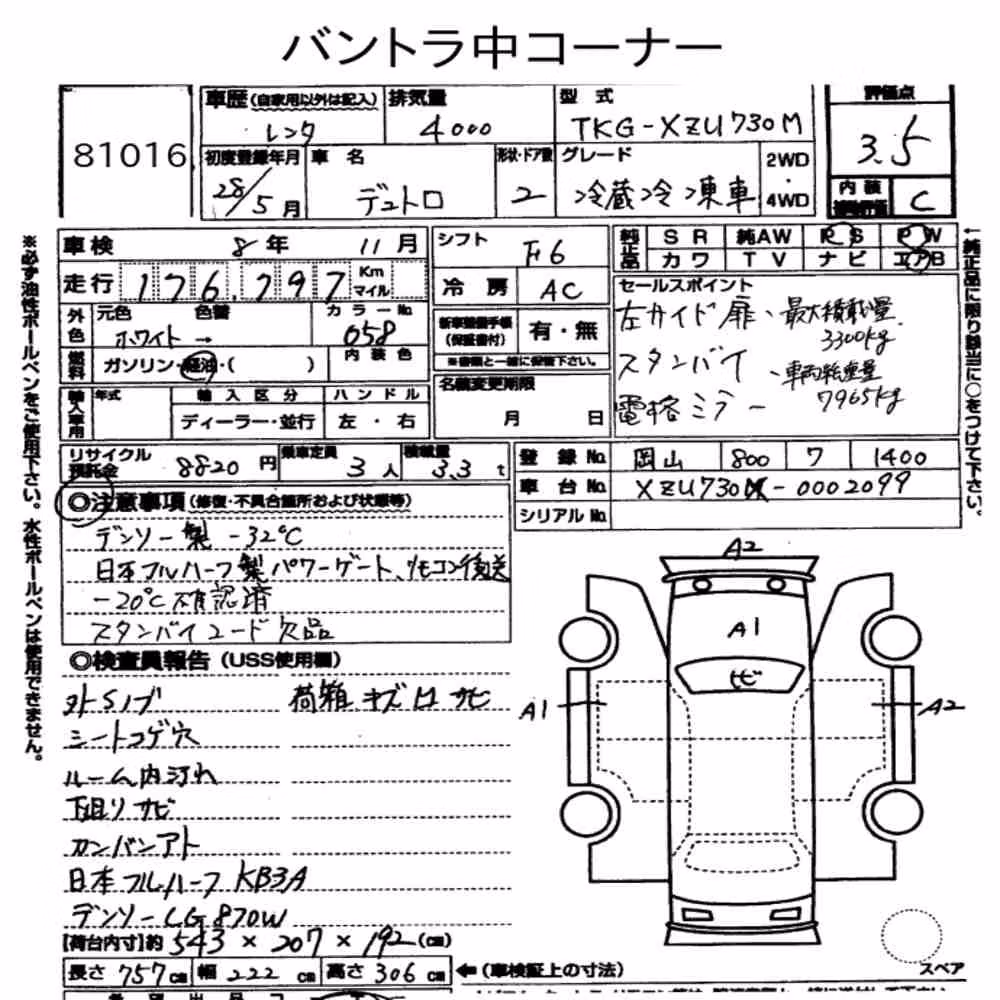 バントラ中コーナー
81016
車歴(自家用以外は記入) 排気量 型式 評価点
レンタ 4000 TKG-XZU730M 3.5
初度登録年月 車名 形状・ドア数 グレード 2WD・4WD 内装
28/5月 デュトロ 2 冷蔵冷凍車 C
車検 8年 11月 シフト F6 純正品 SR 純AW PS PW
カワ TV ナビ エアB
走行 176,797 Km マイル 冷房 AC セールスポイント
外色 元色 色替 カラーNo 左サイド扉、最大積載量
ホワイト→ 058 3300kg
新車整備手帳(保証書付) 有・無
※書類と一緒に保管下さい。
燃料 ガソリン・軽油・( ) 内装色 スタンバイ、車両総重量
名義変更期限 7965kg
輸入車用 年式 輸入区分 ハンドル 月 日 電格ミラー
ディーラー・並行 左・右
リサイクル預託金 8820円 乗車定員 3人 積載量 3.3t 登録No 岡山 800 ワ 1400
車台No XZU730M-0002099
シリアルNo
◎注意事項(修復・不具合箇所および状態等)
デンソー製 -32℃
日本フルハーフ製パワーゲート、リモコン後送
-20℃確認済
スタンバイコード欠品
◎検査員報告(USS使用欄)
外Sノブ 荷箱キズ凹サビ
シートコゲ穴
ルーム内汚れ
下廻りサビ
カンバンアト
日本フルハーフ KB3A
デンソー LG870W
【荷台内寸】約 543×207×192(cm)
長さ 757cm 幅 222cm 高さ 306cm ←(車検証上の寸法)
A2
A1
ヒビ
A1
A2
スペア
※必ず油性ボールペンをご使用下さい。水性ボールペンは使用できません。
↑純正品に限り該当に○をつけて下さい。